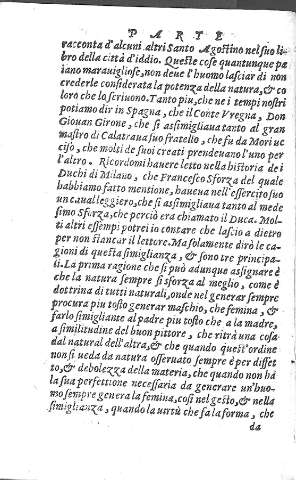 PARTE
racconta d'alcuni altri Santo Agostino nel suo li-
bro della città d'iddio. Queste cose quantunque pa
iano marauigliose, non deue l'huomo lasciar di non
crederle considerata la potenza della natura, & co
loro che lo scriuono. Tanto piu, che ne i tempi nostri
potiamo dir in Spagna, che il Conte Vregna, Don
Giouan Girone, che si assimigliaua tanto al gran
mastro di Calatraua suo fratello, che fu da Mori uc
ciso, che molti de suoi creati prendeuano l'uno per
l'altro. Ricordomi hauere letto nella historia de i
Duchi di Milano, che Francesco Sforza del quale
habbiamo fatto mentione, haueua nell'essercito suo
un caual leggiero, che si assimigliaua tanto al mede
simo Sforza, che perciò era chiamato il Duca. Mol-
ti altri essempi potrei io contare che lascio a dietro
per non stancar il lettore. Ma solamente dirò le ca-
gioni di questa simiglianza, & sono tre principa-
li. La prima ragione che si può adunque assignare è
che la natura sempre si sforza al meglio, come è
dottrina di tutti naturali, onde nel generar sempre
procura piu tosto generar maschio, che femina, &
farlo simigliante al padre piu tosto che a la madre,
a similitudine del buon pittore, che ritrà una cosa
dal natural dell'altra, & che quando quest'ordine
non si ueda da natura osseruato sempre è per diffet
to, & debolezza della materia, che quando non hà
la sua perfettione necessaria da generare un'huo-
mo sempre genera la femina, cosi nel gesto, & nella
simiglianza, quando la uirtù che fa la forma, che
da